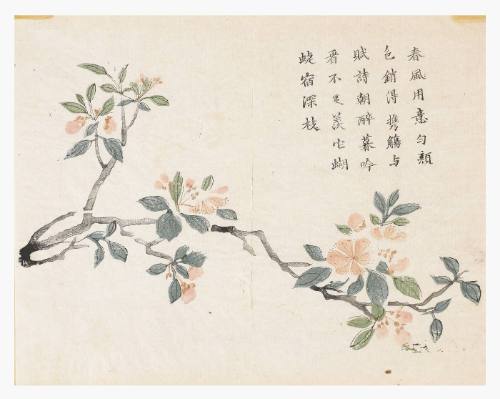 春風用意勻顏
色銷得攜觴与
賦詩朝醉暮吟
看不足羨它蝴
蝶宿深枝